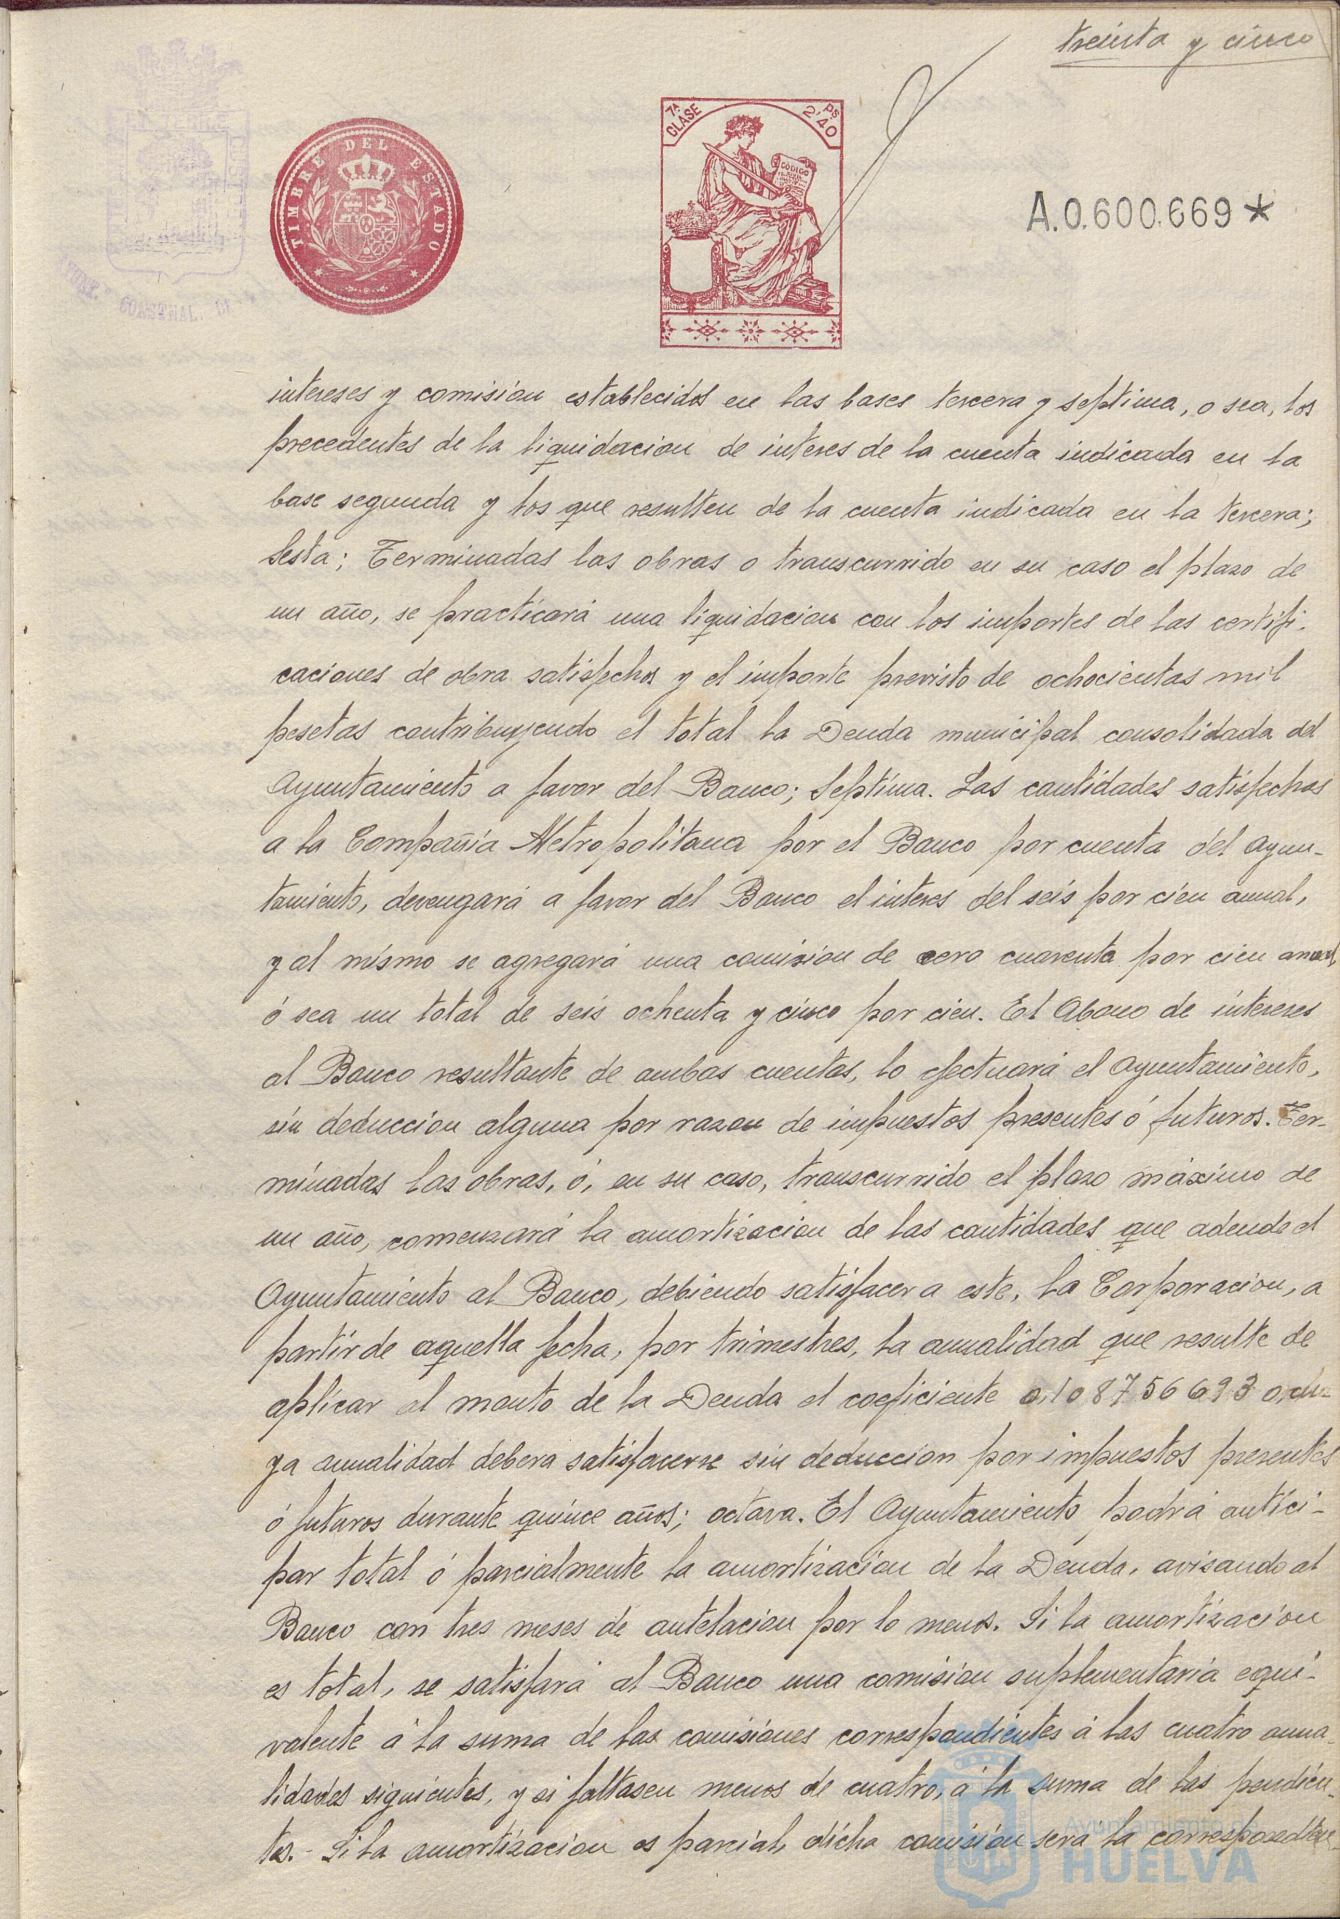 treinta y cinco
TIMBRE DEL ESTADO
7ª CLASE
PS 2'40
CODIGO
A.0.600.669*
intereses y comisión establecidos en las bases tercera y septima, o sea, los
precedentes de la liquidacion de interes de la cuenta indicada en la
base segunda y los que resulten de la cuenta indicada en la tercera;
Sesta; Terminadas las obras o transcurrido en su caso el plazo de
un año, se practicará una liquidacion con los importes de las certifi-
caciones de obra satisfechos y el importe previsto de ochocientas mil
pesetas contribuyendo el total la Deuda municipal consolidada del
Ayuntamiento a favor del Banco; Septima. Las cantidades satisfechas
a la Compañia Metropolitana por el Banco por cuenta del Ayun-
tamiento, devengará a favor del Banco el interes del seis por cien anual,
y al mismo se agregará una comision de cero cuarenta por cien anual,
ó sea un total de seis ochenta y cinco por cien. El Abono de intereses
al Banco resultante de ambas cuentas, lo efectuará el Ayuntamiento,
sin deduccion alguna por razon de impuestos presentes ó futuros. Ter-
minadas las obras, ó, en su caso, transcurrido el plazo máximo de
un año, comenzará la amortizacion de las cantidades que adeude el
Ayuntamiento al Banco, debiendo satisfacer a este, la Corporacion, a
partir de aquella fecha, por trimestres, la anualidad que resulte de
aplicar al monto de la Deuda el coeficiente 0,108756693 0, cu-
ya anualidad debera satisfacerse sin deduccion por impuestos presentes
ó futuros durante quince años; octava. El Ayuntamiento podrá antici-
par total ó parcialmente la amortizacion de la Deuda, avisando al
Banco con tres meses de antelacion por lo menos. Si la amortizacion
es total, se satisfará al Banco una comision suplementaria equi-
valente á la suma de las comisiones correspondientes á las cuatro anua-
lidades siguientes, y si faltasen menos de cuatro, á la suma de las pendien-
tes. - Si la amortizacion es parcial, dicha comisión será la correspondien-
Ayuntamiento de
HUELVA